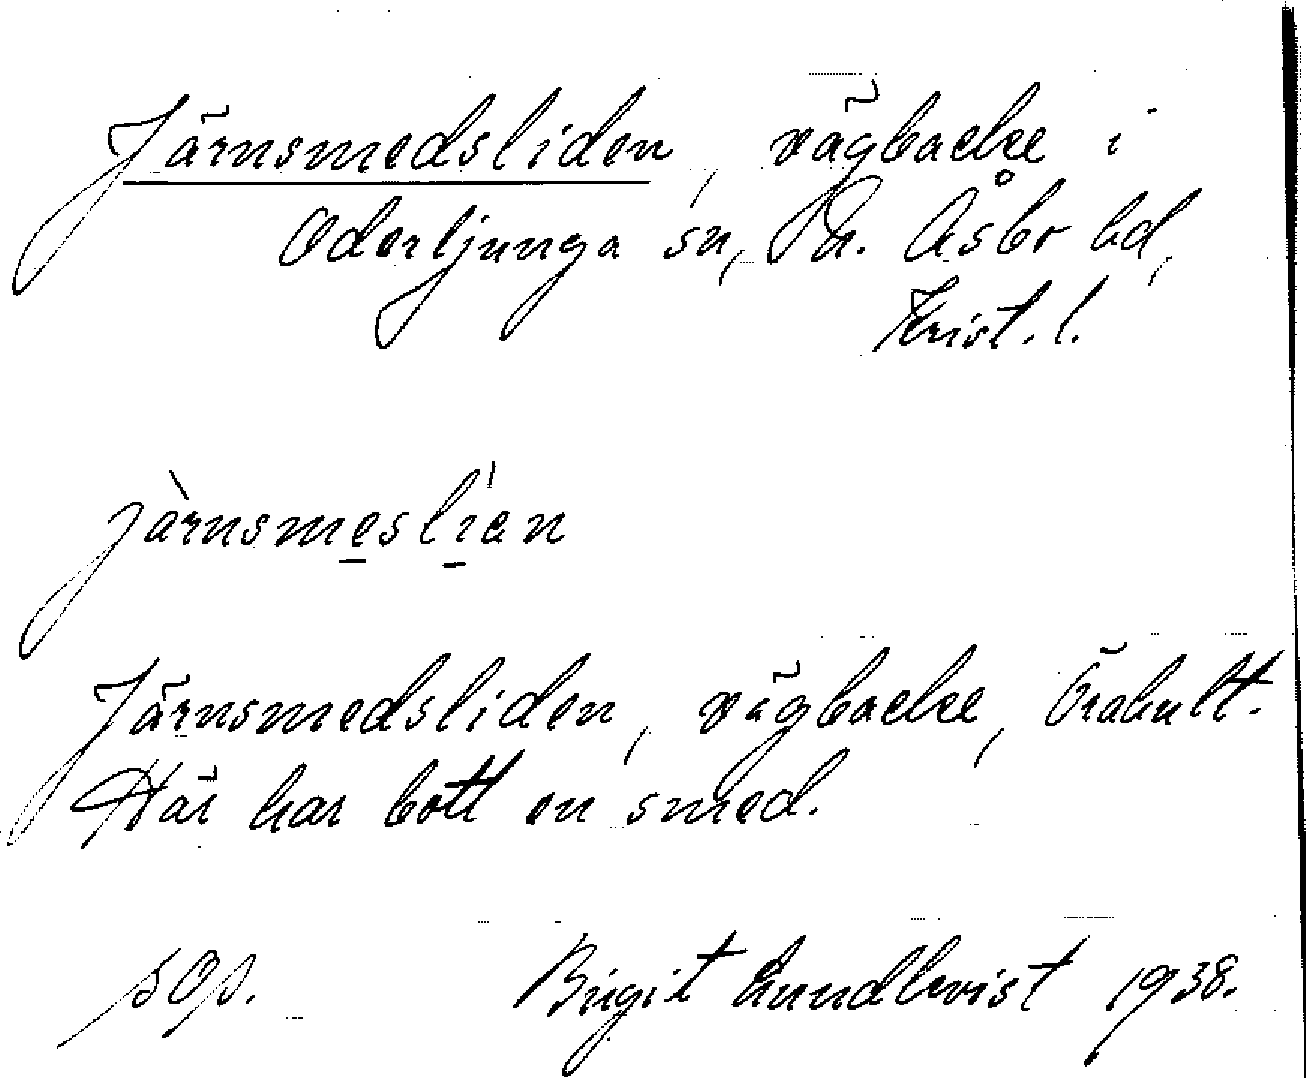 Järnsmedsliden, vägbacke i
Oderljunga sn, N. Åsbo hd,
Krist. l.
jàrnsmeslíen
Järnsmedsliden, vägbacke, Örahult.
Här har bott en smed.
sop. Birgit Lundkvist 1938.